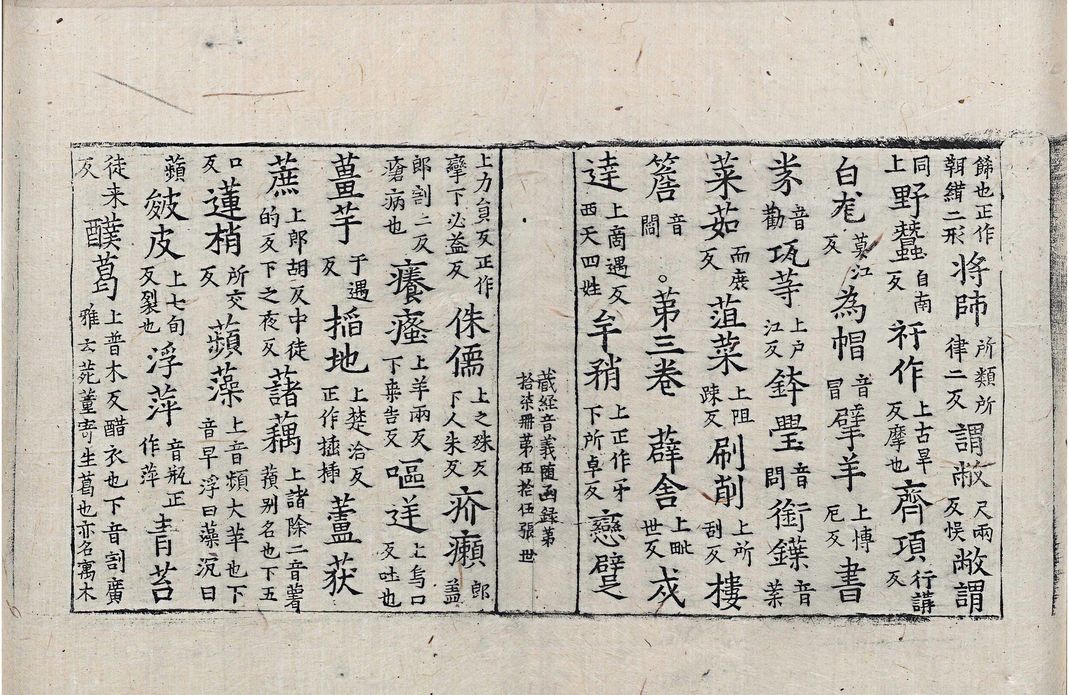 餙也正作紺二形將帥所類所律二反謂敝尺兩反悮敞謂
同上野蠶自南反衦作上古旱反摩也齊項行講反
白尨莫江反為帽音冒擘羊上博厄反書
音勸瓨等上户江反鉢璺音問銜鐷音葉
菜茹而庶反葅菜上阻踈反刷削上所刮反樓
簷音閻。第三卷薜舍上毗世反戍
逹上商遇反西天四姓牟矟上正作牙下所卓反戀躄
藏経音義随函録第
拾柒冊第伍拾伍張 世
上力貟反正作攣下必益反侏儒上之殊反下人朱反疥癩郎盖
郎割二反瘡病也癢瘙上羊兩反下桒告反嘔逆上烏口反吐也
薑芋于遇反搯地上楚洽反正作揷蘆荻
蔗上郎胡反中徒的反下之夜反藷藕上諸除二音薯蕷别名也下五
口反蓮梢所交反蘋藻上音頻大萍也下音早浮曰藻沉曰
蘋皴皮上七旬反裂也浮萍音瓶正作萍青苔
徒来反醭葛上普木反醋衣也下音割廣雅云菀董寄生葛也亦名寓木